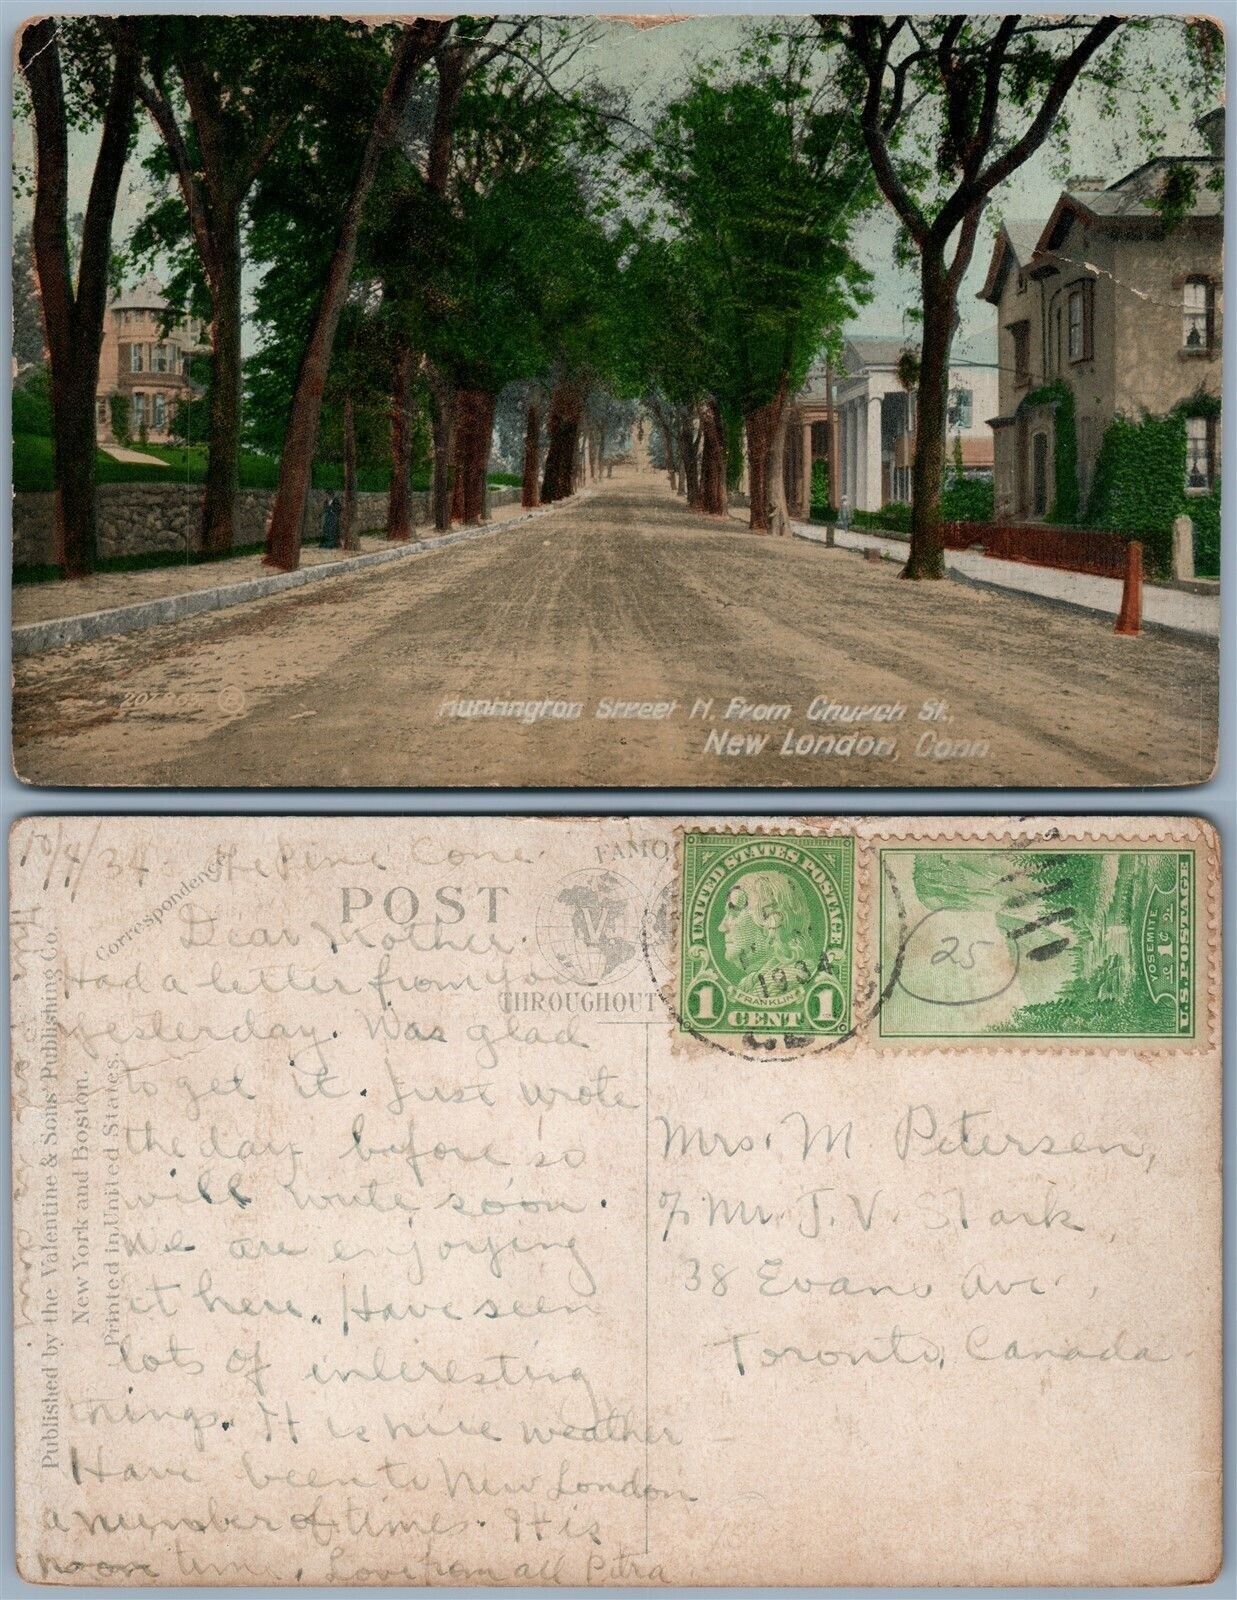 Huntington Street N. From Church St.,
New London, Conn.
10/4/34 The Pine Cone.
Correspondence
POST
FAMO
THROUGHOUT
Dear Mother.
Had a letter from you
yesterday. Was glad
to get it. Just wrote
the day before so
will write soon.
We are enjoying
it here. Have seen
lots of interesting
things. It is nice weather
Have been to New London
a number of times. It is
noon time. Love from all Petra
Published by the Valentine & Sons' Publishing Co.
New York and Boston.
Printed in United States.
UNITED STATES POSTAGE
FRANKLIN
1 CENT 1
1934
YOSEMITE
1¢
U.S. POSTAGE
25
Mrs. M. Petersen,
c/o Mr. J. V. Stark,
38 Evans Ave.,
Toronto, Canada